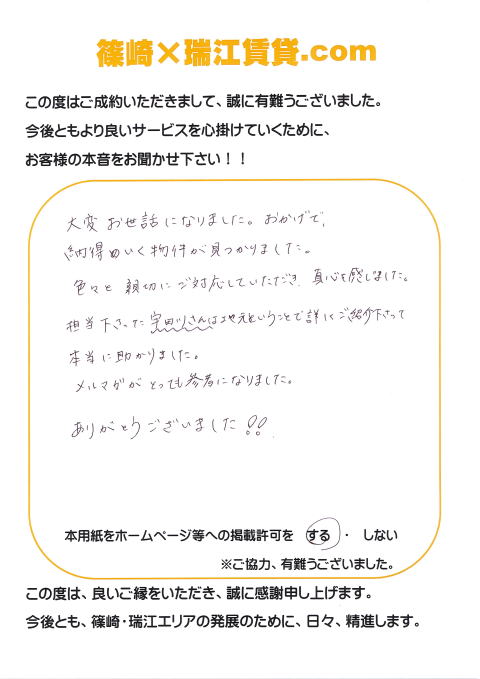 篠崎×瑞江賃貸.com
この度はご成約いただきまして、誠に有難うございました。
今後ともより良いサービスを心掛けていくために、
お客様の本音をお聞かせ下さい！！
大変 お世話になりました。おかげで、
納得のいく物件が見つかりました。
色々と 親切にご対応していただき、真心を感じました。
担当下さった宇田川さんは地元ということで詳しくご紹介下さって
本当に助かりました。
メルマガが とっても参考になりました。
ありがとうございました!!
本用紙をホームページ等への掲載許可を する ・ しない
※ご協力、有難うございました。
この度は、良いご縁をいただき、誠に感謝申し上げます。
今後とも、篠崎・瑞江エリアの発展のために、日々、精進します。